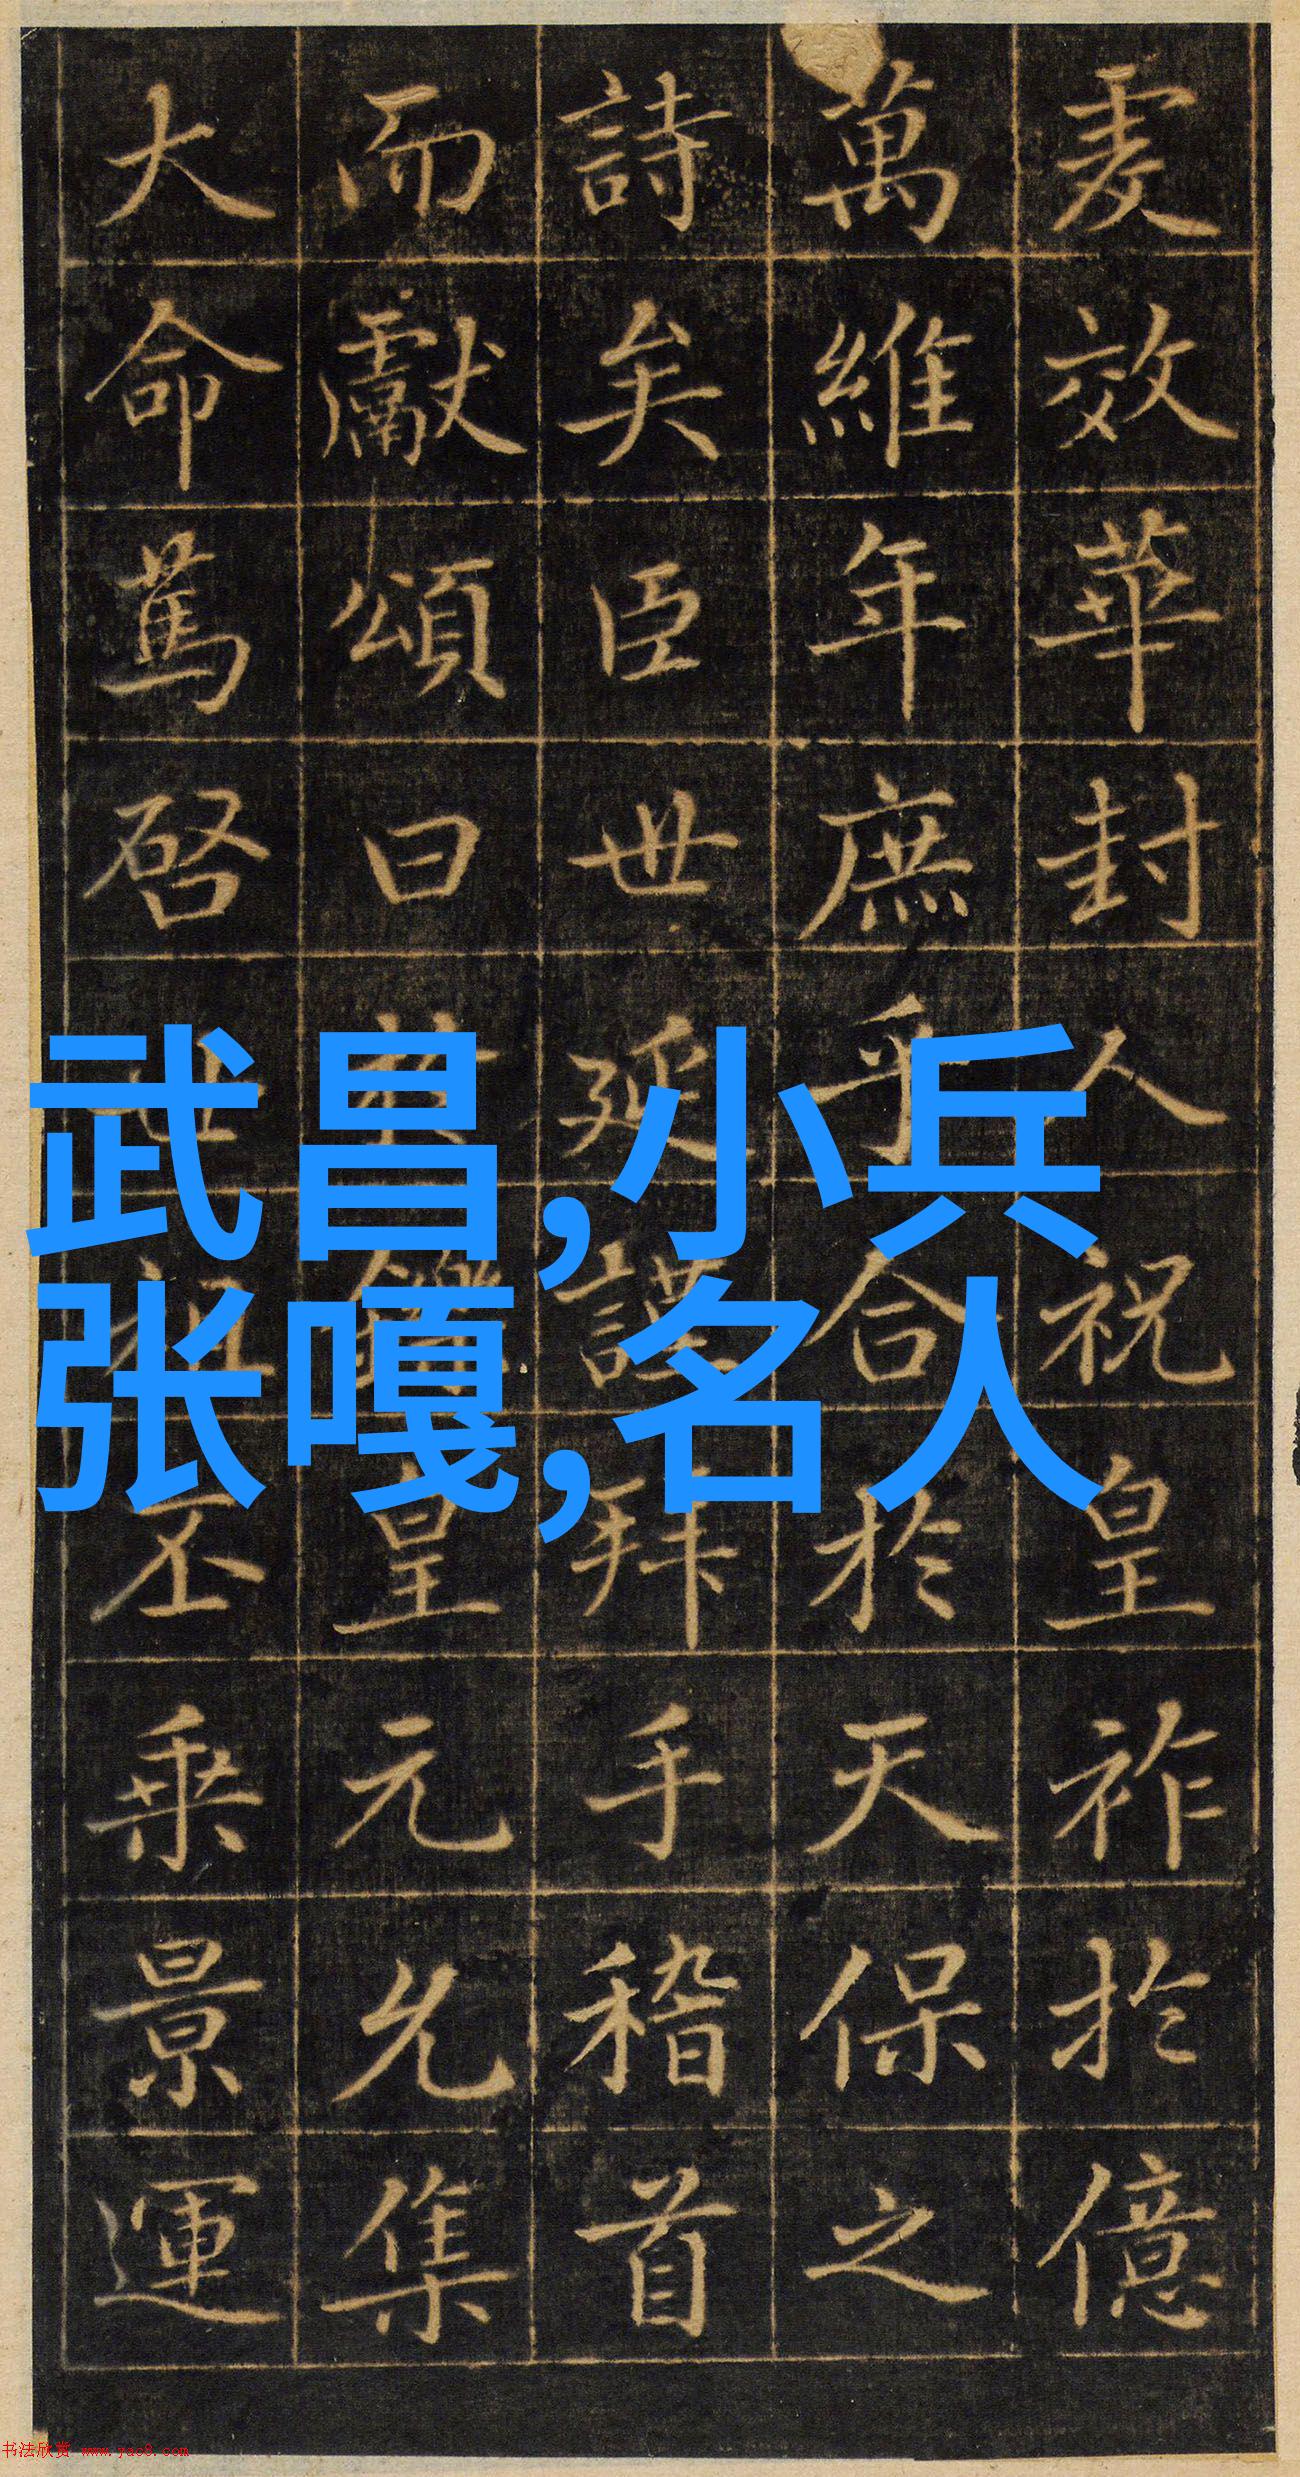 虔效華封人祝皇祚於億
萬維年庶乎合於天保之
詩矣臣世延謹拜手稽首
而獻頌曰於鑠皇元允集
大命篤啓世祖丕乘景運
武昌,小兵
张嘎,名人
书法欣赏 www.yac8.com